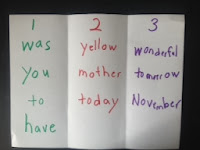 1
was
you
to
have
2
yellow
mother
today
3
wonderful
tomorrow
November